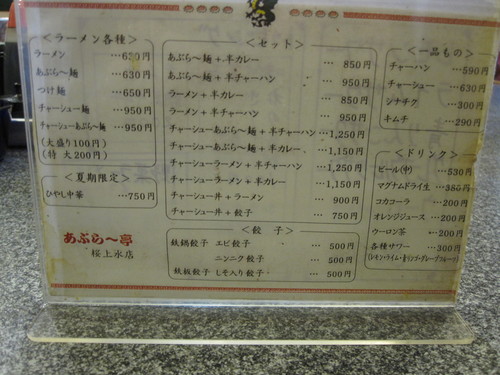 ＜ラーメン各種＞
ラーメン …630円
あぶら〜麺 …630円
つけ麺 …650円
チャーシュー麺 …950円
チャーシューあぶら〜麺 …950円
(大盛り100円)
(特 大200円)
＜夏期限定＞
ひやし中華 …750円
あぶら〜亭
桜上水店
＜セット＞
あぶら〜麺＋半カレー … 850円
あぶら〜麺＋半チャーハン … 950円
ラーメン＋半カレー … 850円
ラーメン＋半チャーハン … 950円
チャーシューあぶら〜麺＋半チャーハン …1,250円
チャーシューあぶら〜麺＋半カレー …1,150円
チャーシューラーメン＋半チャーハン …1,250円
チャーシューラーメン＋半カレー …1,150円
チャーシュー丼＋ラーメン … 900円
チャーシュー丼＋餃子 … 750円
＜餃 子＞
鉄鍋餃子 エビ餃子 … 500円
ニンニク餃子 … 500円
鉄板餃子 しそ入り餃子 … 500円
＜一品もの＞
チャーハン …590円
チャーシュー …630円
シナチク …300円
キムチ …290円
＜ドリンク＞
ビール(中) …530円
マグナムドライ生 …380円
コカコーラ … 200円
オレンジジュース … 200円
ウーロン茶 … 200円
各種サワー … 300円